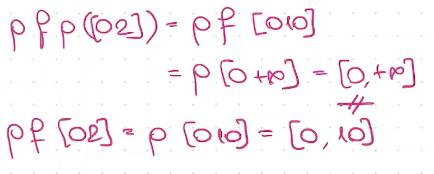 ρ f ρ([02]) = ρ f [010]
= ρ [0+∞] = [0,+∞]
ρ f [02] = ρ [010] = [0, 10]